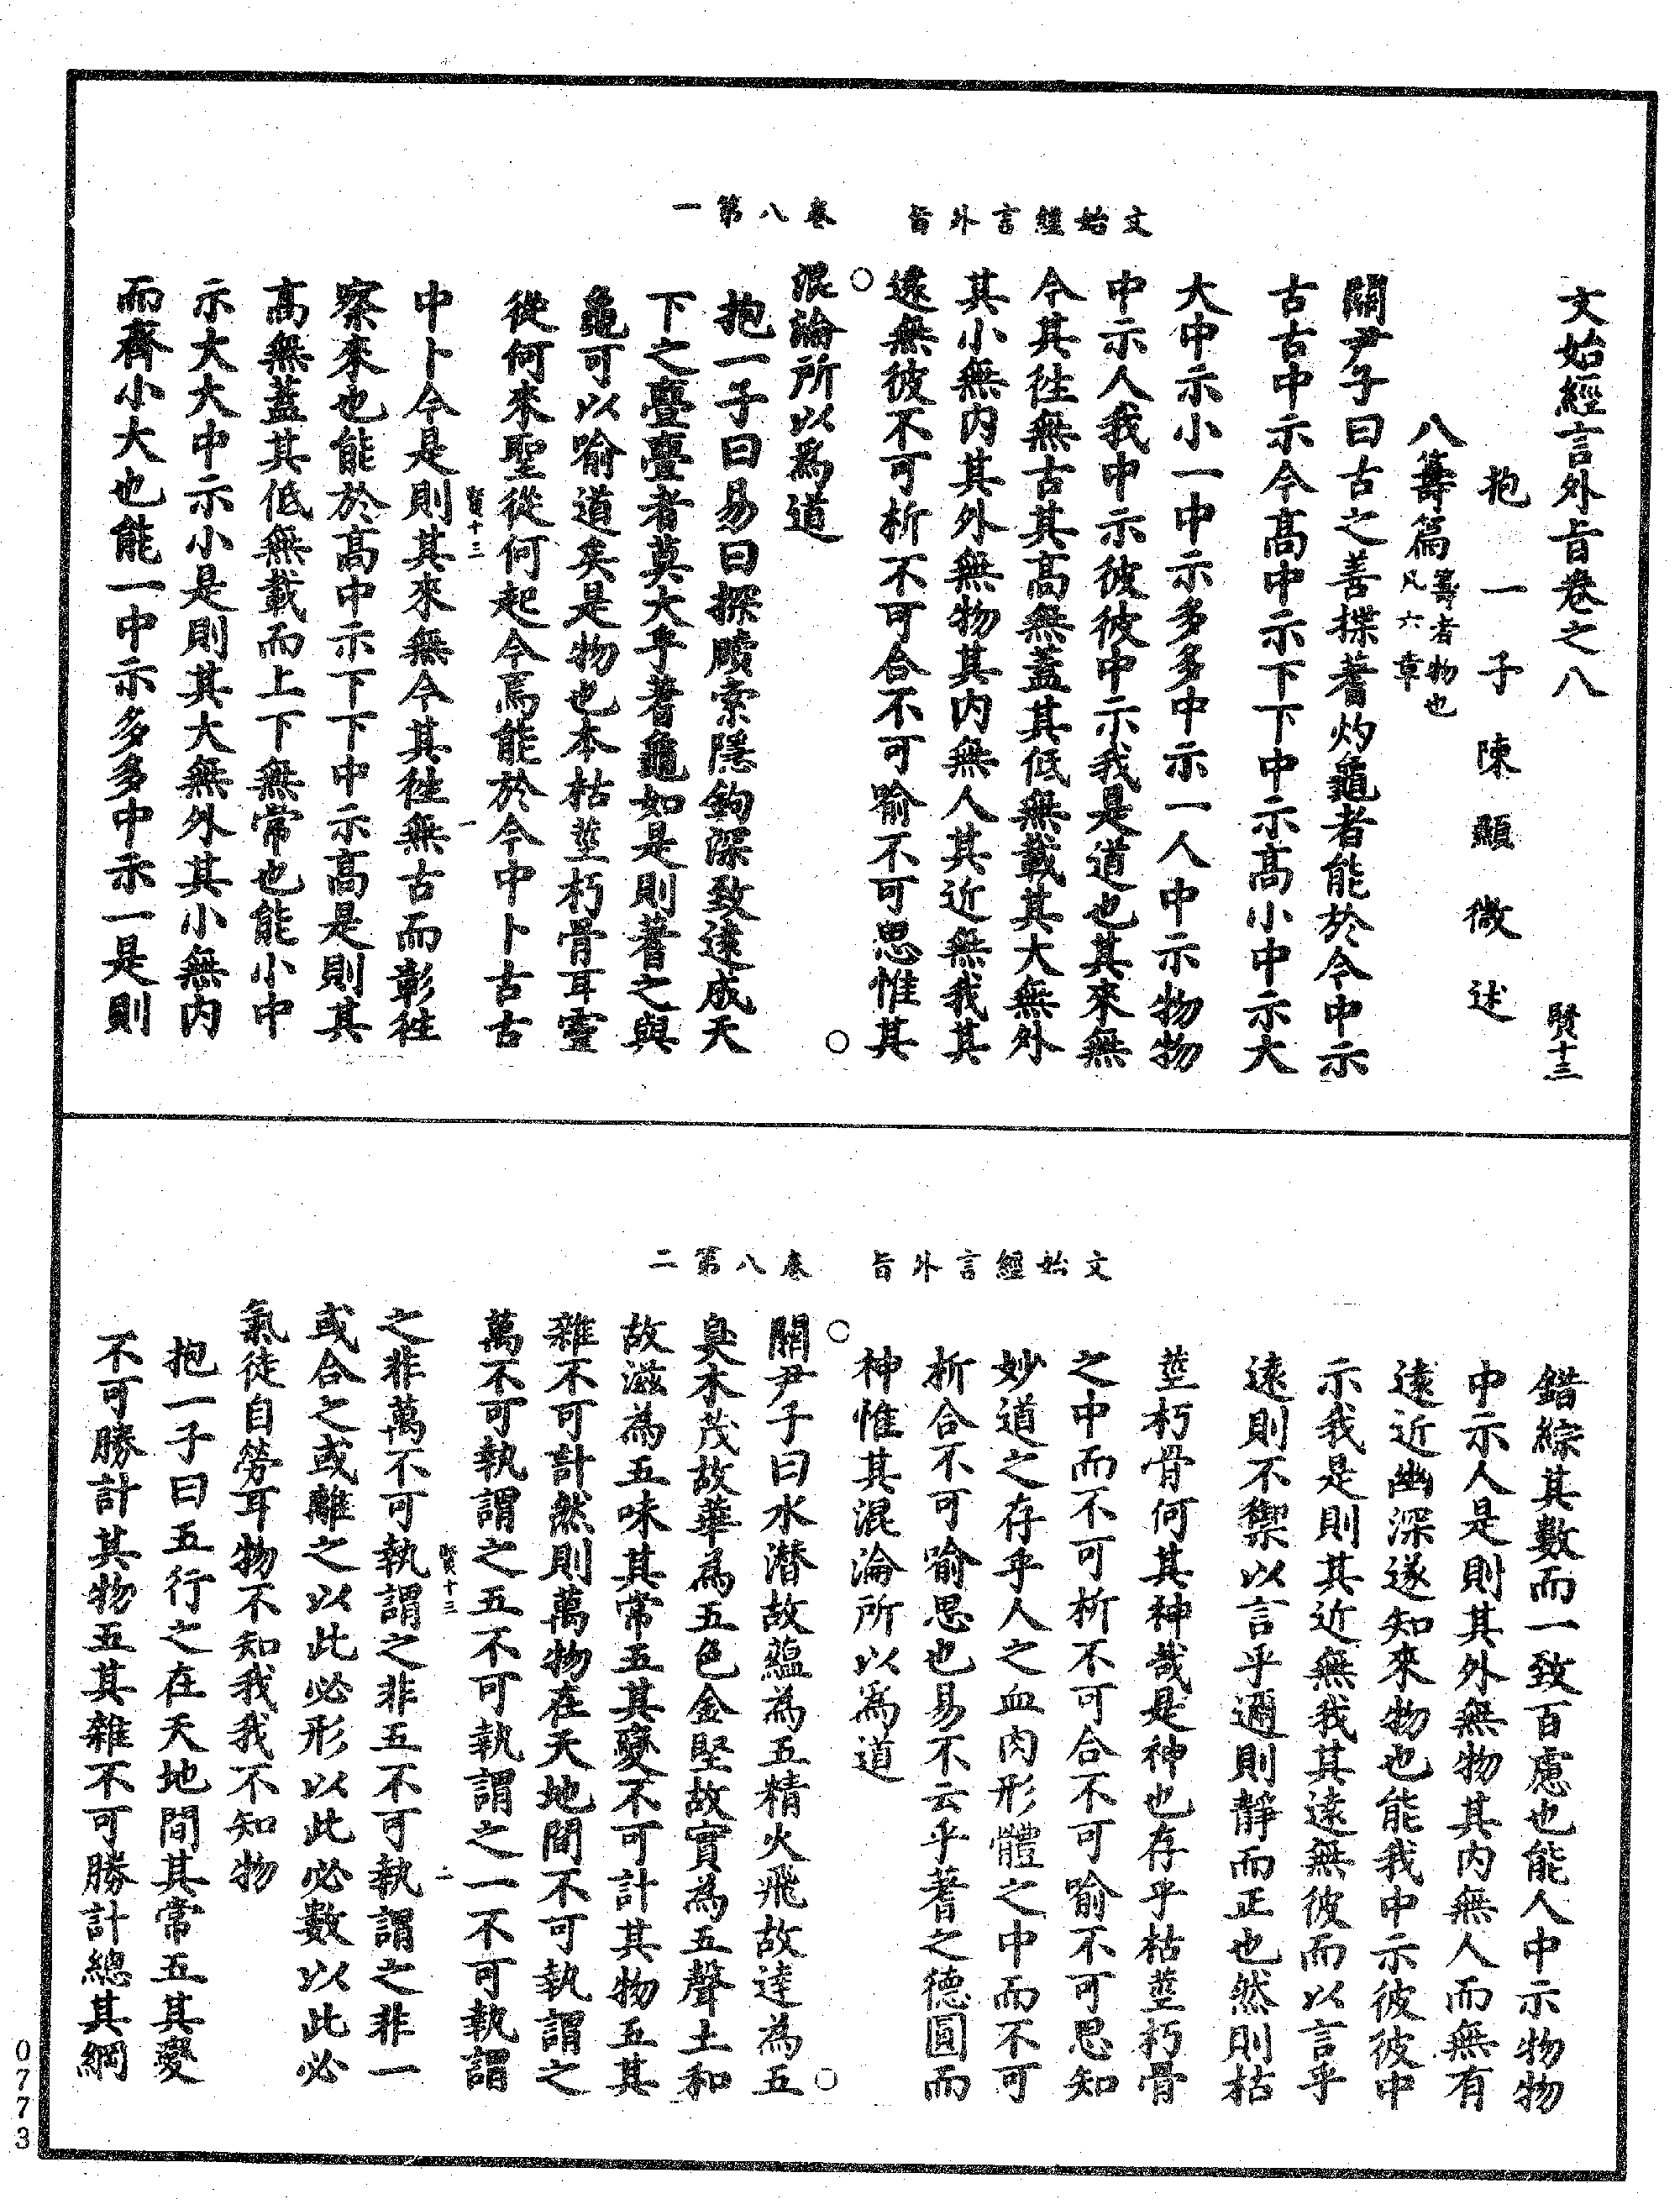 文始經言外旨 卷八第一
文始經言外旨卷之八 賢十三
抱一子陳顯微述
八籌篇 籌者物也 凡六章
關尹子曰古之善揲蓍灼龜者能於今中示
古古中示今高中示下下中示高小中示大
大中示小一中示多多中示一人中示物物
中示人我中示彼彼中示我是道也其來無
今其徃無古其高無蓋其低無載其大無外
其小無內其外無物其內無人其近無我其
遠無彼不可析不可合不可喻不可思惟其
混淪所以爲道
抱一子曰易曰探賾索隱鉤深致遠成天
下之亹亹者莫大乎蓍龜如是則蓍之與
龜可以喻道矣是物也本枯莖朽骨耳靈
從何來聖從何起今焉能於今中卜古古
賢十三 一
中卜今是則其來無今其徃無古而彰徃
察來也能於高中示下下中示高是則其
高無蓋其低無載而上下無常也能小中
示大大中示小是則其大無外其小無內
而齊小大也能一中示多多中示一是則
文始經言外旨 卷八第二
錯綜其數而一致百慮也能人中示物物
中示人是則其外無物其內無人而無有
遠近幽深遂知來物也能我中示彼彼中
示我是則其近無我其遠無彼而以言乎
遠則不禦以言乎邇則靜而正也然則枯
莖朽骨何其神哉是神也存乎枯莖朽骨
之中而不可析不可合不可喻不可思知
妙道之存乎人之血肉形體之中而不可
析合不可喻思也易不云乎蓍之德圓而
神惟其混淪所以爲道
關尹子曰水潛故蘊為五精火飛故達為五
臭木茂故華為五色金堅故實為五聲土和
故滋為五味其常五其變不可計其物五其
雜不可計然則萬物在天地間不可執謂之
萬不可執謂之五不可執謂之一不可執謂
賢十三 二
之非萬不可執謂之非五不可執謂之非一
或合之或離之以此必形以此必數以此必
氣徒自勞耳物不知我我不知物
抱一子曰五行之在天地間其常五其變
不可勝計其物五其雜不可勝計總其綱
0773